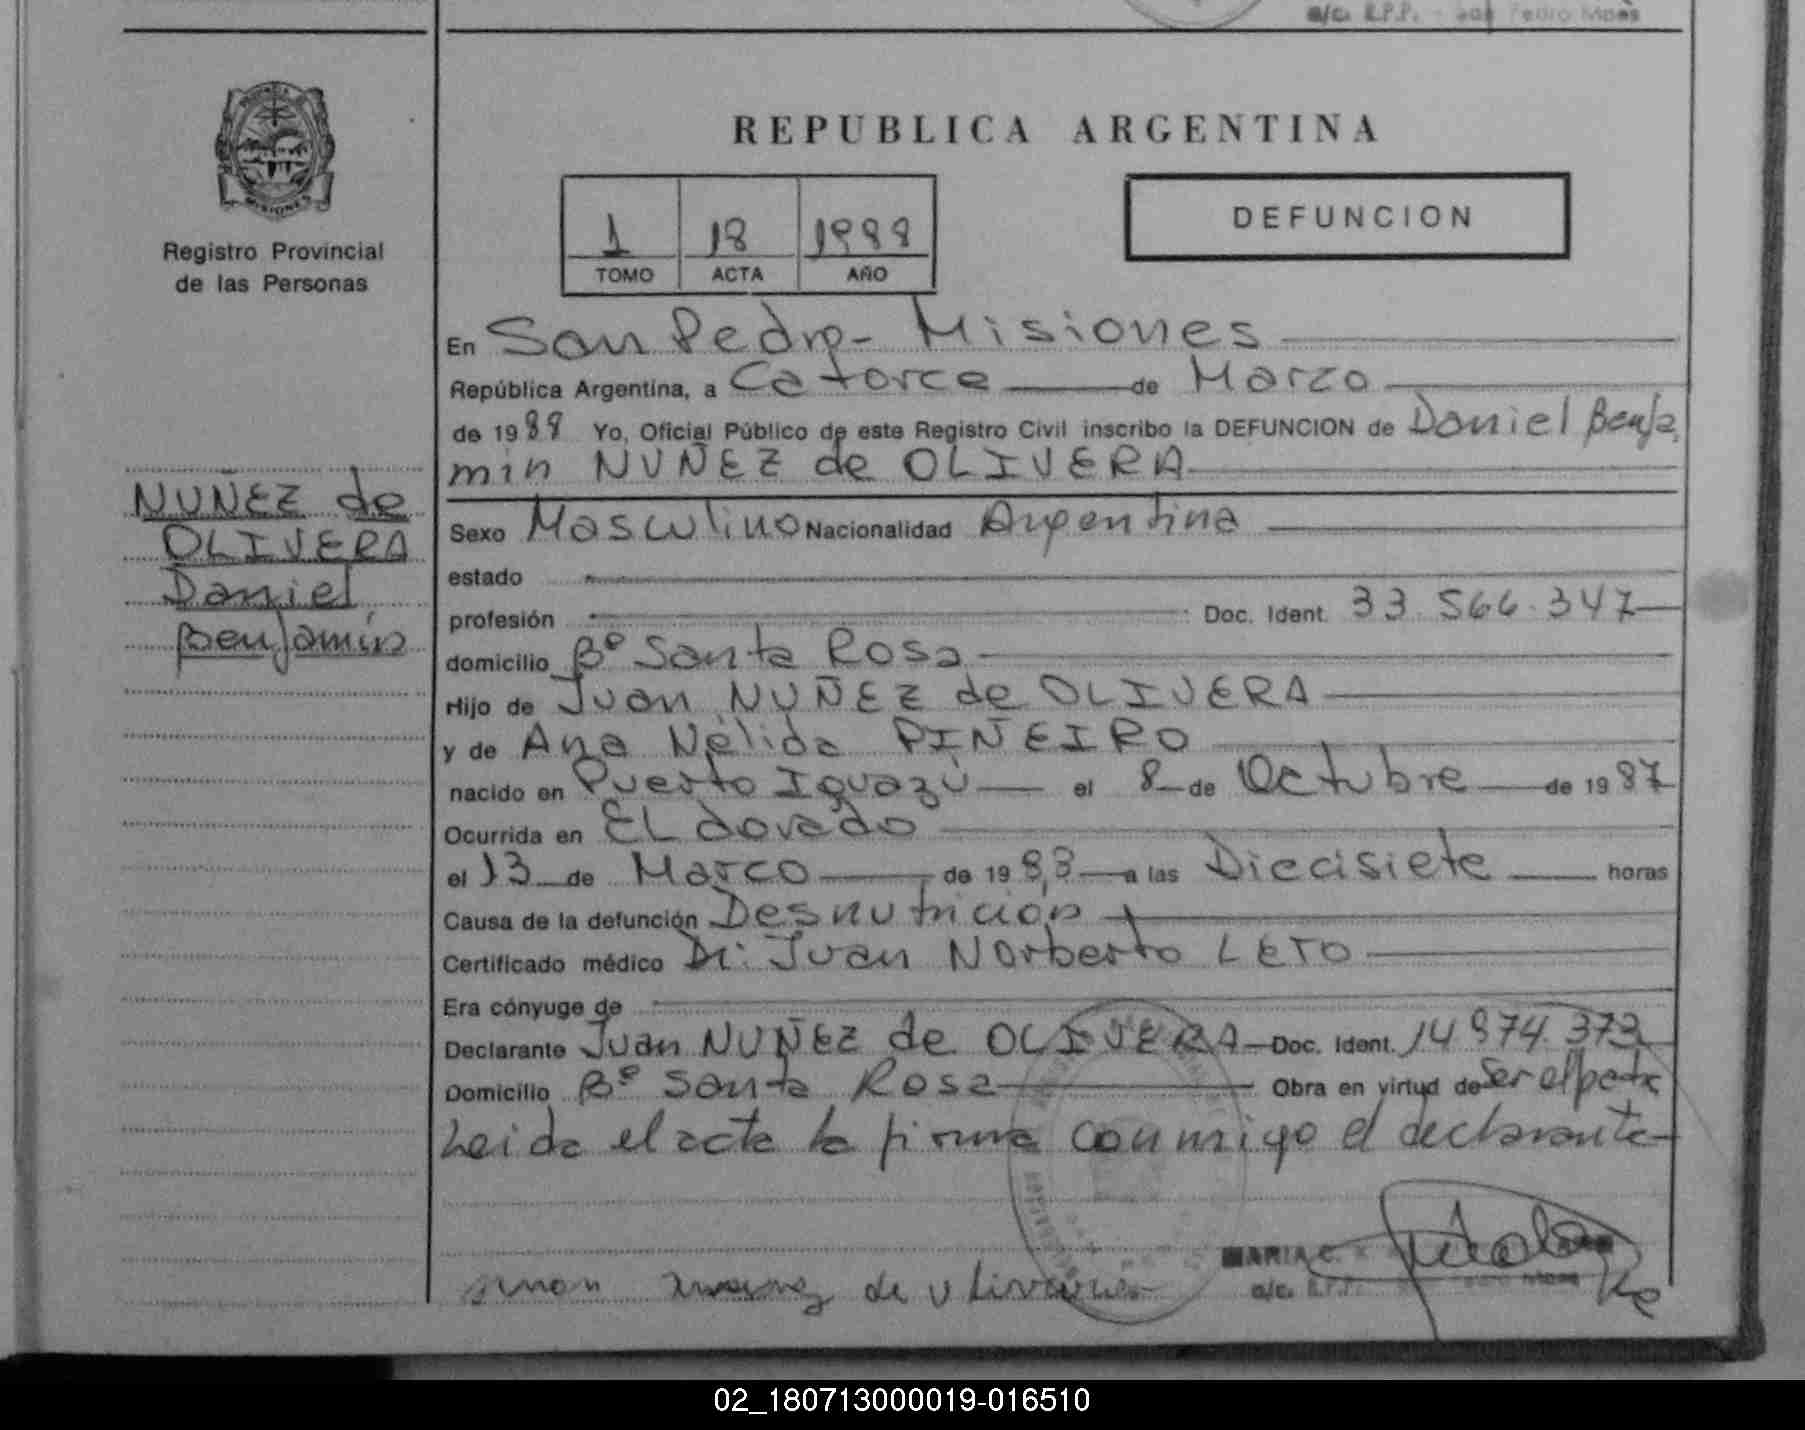 a/c. R.P.P. - San Pedro Mnes
REPUBLICA ARGENTINA
PROVINCIA DE
MISIONES
Registro Provincial
de las Personas
1 18 1988
TOMO ACTA AÑO
DEFUNCION
En San Pedro - Misiones
República Argentina, a Catorce de Marzo
de 1988 Yo, Oficial Público de este Registro Civil inscribo la DEFUNCION de Daniel Benja
min NUÑEZ de OLIVERA
NUÑEZ de
OLIVERA
Daniel
Benjamín
Sexo Masculino Nacionalidad Argentina
estado
profesión Doc. Ident. 33.566.347
domicilio Bº Santa Rosa
Hijo de Juan NUÑEZ de OLIVERA
y de Ana Nélida PIÑEIRO
nacido en Puerto Iguazú el 8 de Octubre de 1987
Ocurrida en ELdorado
el 13 de Marzo de 1988 a las Diecisiete horas
Causa de la defunción Desnutrición
Certificado médico Dr. Juan Norberto LETO
Era cónyuge de
Declarante Juan NUÑEZ de OLIVERA Doc. Ident. 14.974.373
Domicilio Bº Santa Rosa Obra en virtud de Ser el padre
Leida el acta la firma conmigo el declarante
MARIA C.
a/c. R.P.P. Pedro Mnes
02_180713000019-016510